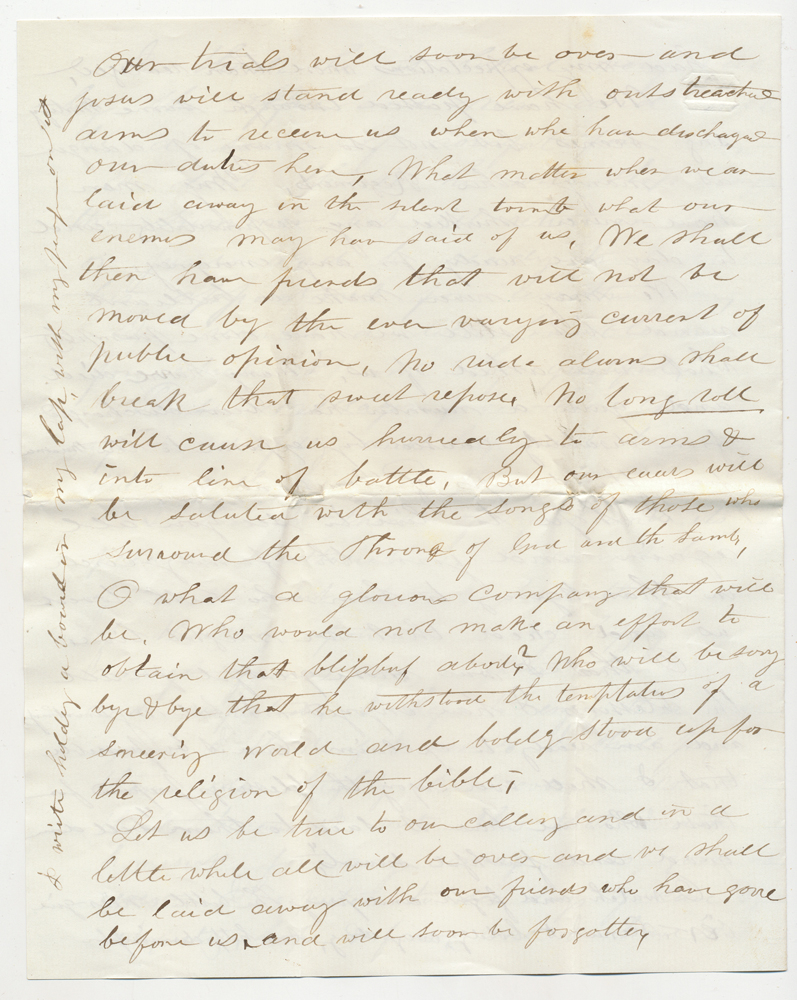 Our trials will soon be over and
jesus will stand ready with outstreached
arms to receive us when whe have dischaged
our duties here, What matter when we are
laid away in the silent tomb what our
enemies may have said of us, We shall
then have friends that will not be
moved by the ever varying current of
public opinion, No rude alarms shall
break that sweet repose. No long roll
will cause us hurriedly to arms &
into line of battle, But our ears will
be saluted with the songs of those who
surround the Throne of God and the Lamb,
O what a glorious company that will
be. Who would not make an effort to
obtain that blissful abode? Who will be sorry
bye & bye that he withstood the temptations of a
sneering world and boldly stood up for
the religion of the bible,
Let us be true to our calling and in a
little while all will be over and we shall
be laid away with our friends who have gone
before us, and will soon be forgotten,
I write holding a board in my lap, with my paper on it